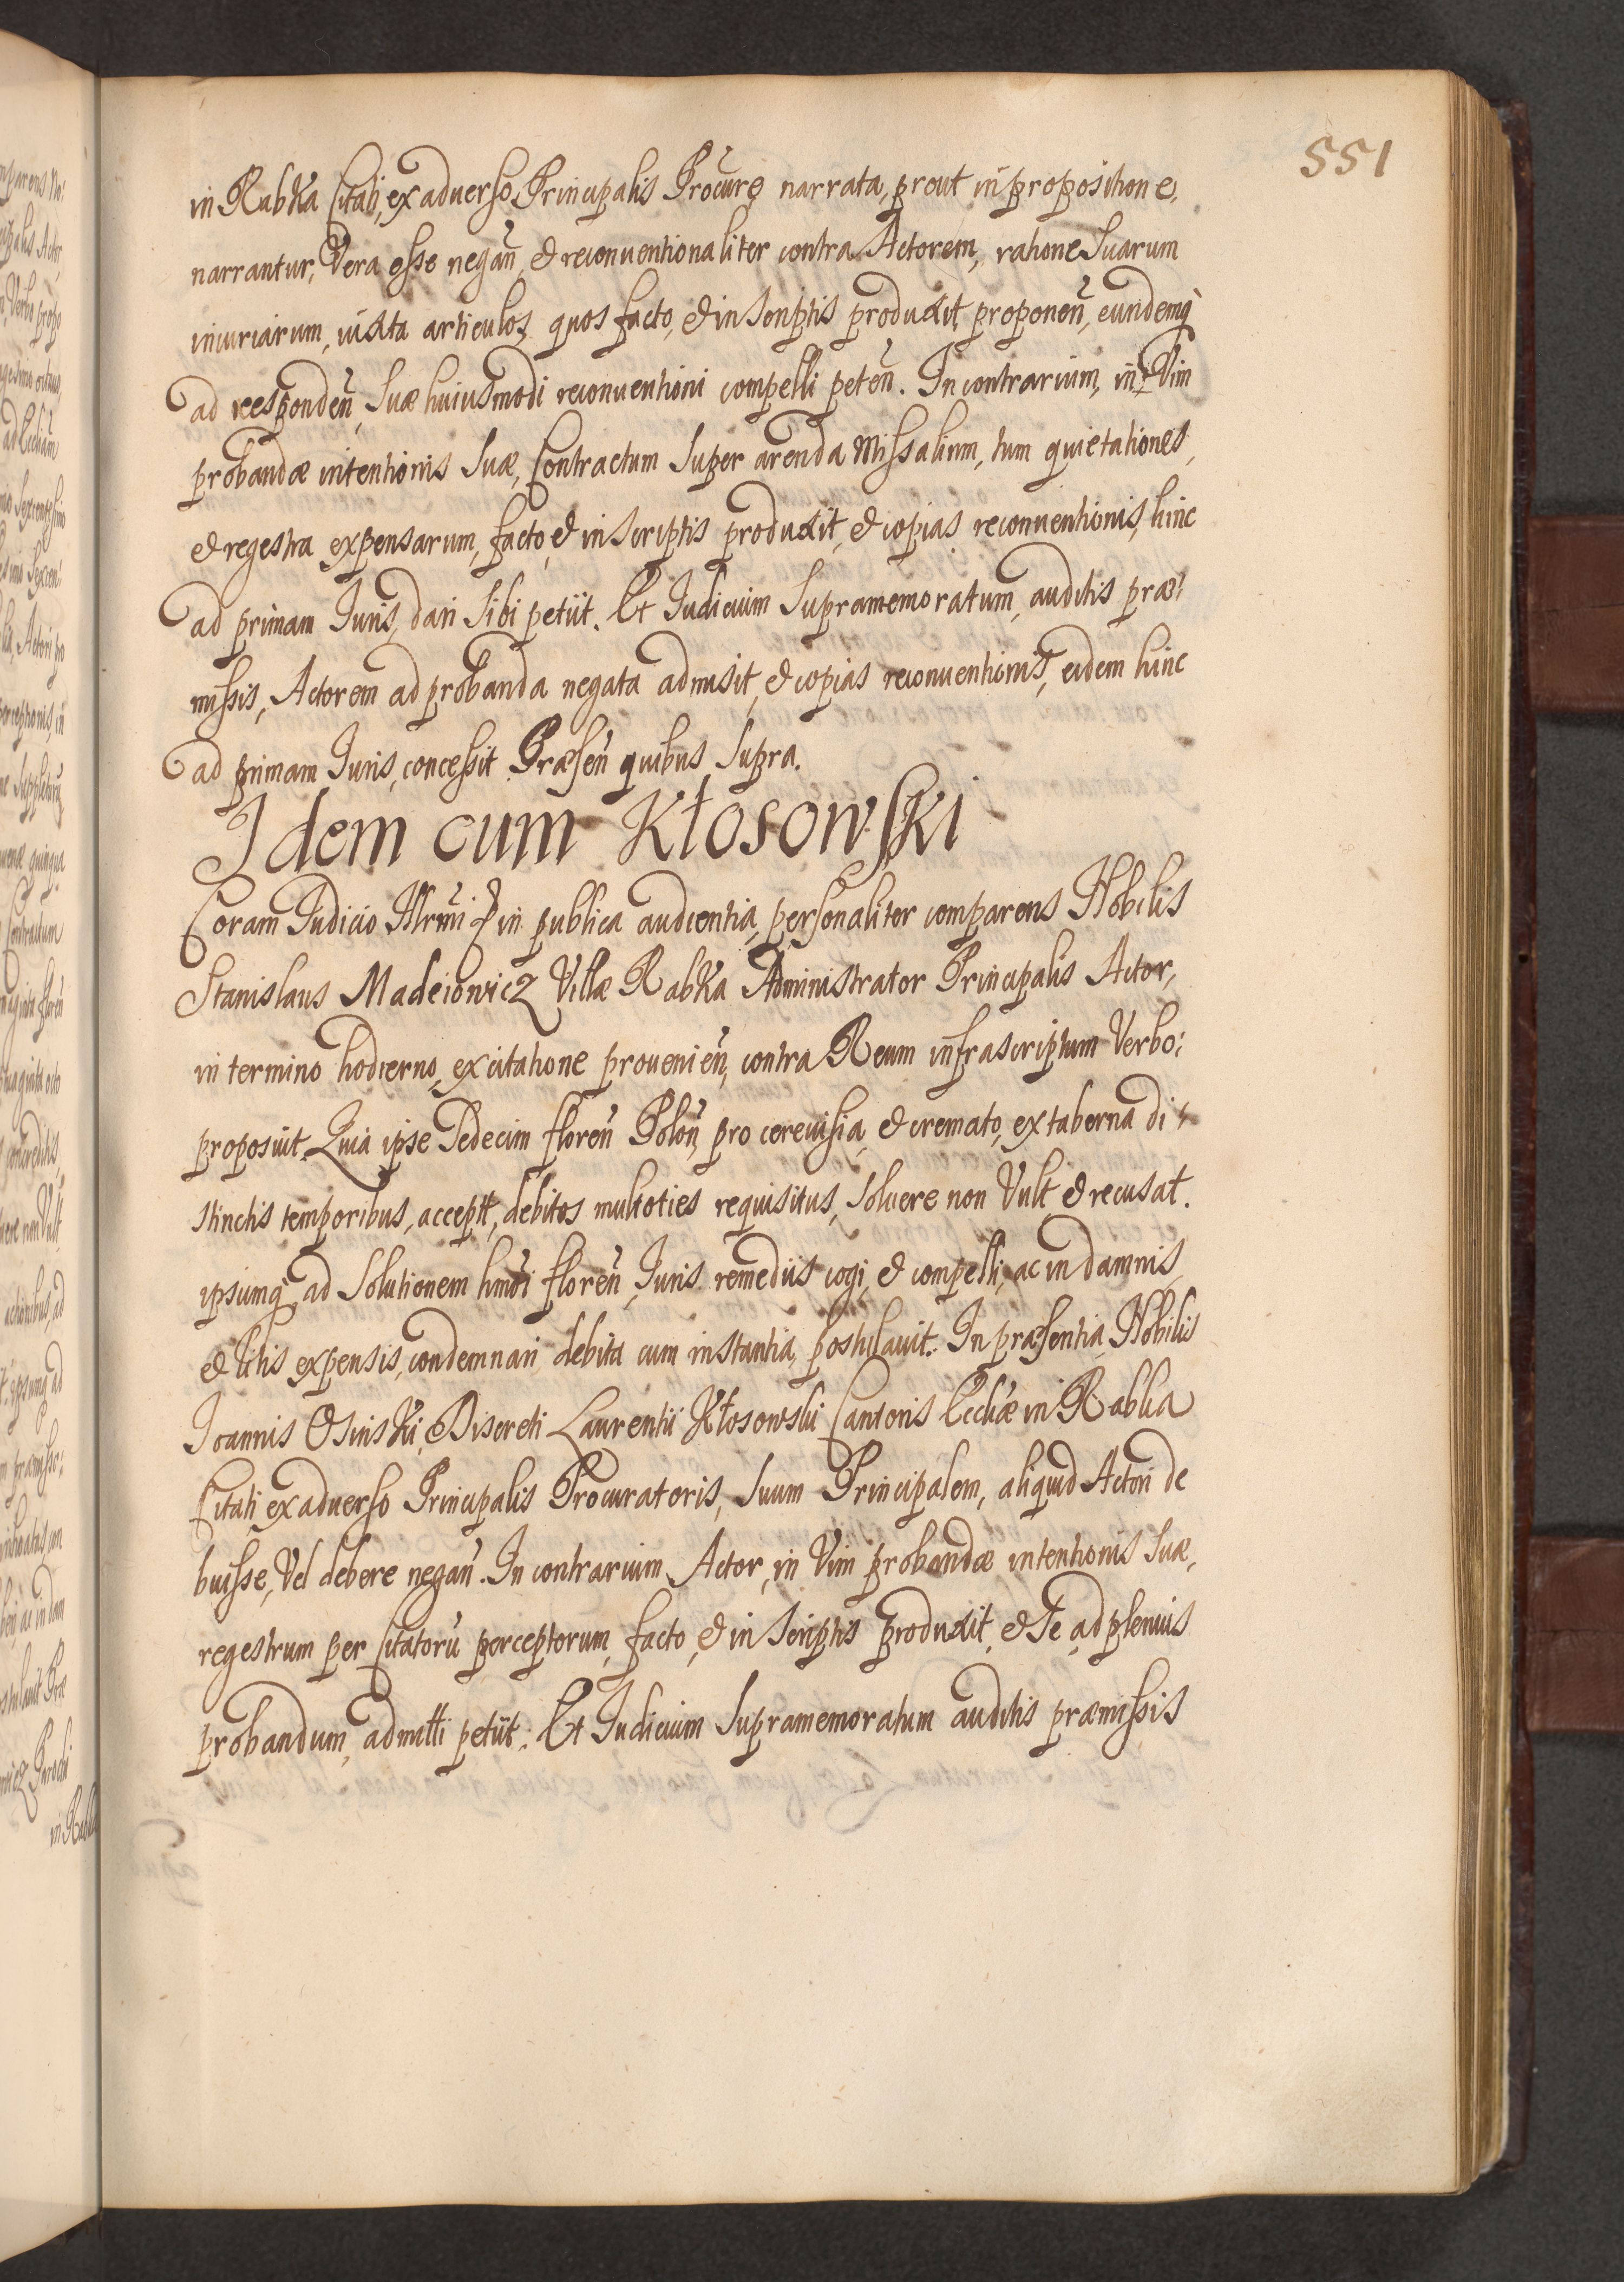 551
in Rabka Citati, ex aduerso Principalis Procure narrata, prout in propositione,
narrantur, Vera esse negan̄, et reconuentionaliter contra Actorem, ratione Suarum
iniuriarum, iuxta articulos, quos facto, et in Scriptis produxit, proponen̄, eundemq̀
ad responden̄, Suæ huiusmodi reconuentioni compelli peten̄. In contrarium, in Vim
probandæ intentionis Suæ, Contractum Super arenda Missalium, tum quietationes,
et regestra expensarum, facto, et in Scriptis produxit, et copias reconuentionis, hinc
ad primam Iuris, dari Sibi petiit. Et Iudicium Supramemoratum, auditis præ:
missis, Actorem ad probanda negata admisit, et copias reconuentionis, eidem hinc
ad primam Iuris, concessit. Præsen̄ quibus Supra.
Idem cum Kłosowski
Coram Iudicio Illrmi in publica audientia, personaliter comparens Nobilis
Stanislaus Madeiowicz Villæ Rabka Administrator Principalis Actor,
in termino hodierno, ex citatione prouenien̄, contra Reum infrascriptum Verbo:
proposuit. Quia ipse Sedecim floren̄ Polon̄, pro cereuisia, et cremato, ex taberna di:
stinctis temporibus, accepit, debitos multoties requisitus, Soluere non Vult, et recusat.
ipsumq̀, ad Solutionem hmōi floren̄, Iuris remediis cogi, et compelli, ac in damnis,
et litis expensis, condemnari, debita cum instantia, postulauit. In præsentia, Nobilis
Ioannis Osinski, Discreti Laurentii Kłosowski Cantoris Eccliæ in Rabka
Citati ex aduerso Principalis Procuratoris, Suum Principalem, aliquid Actori de
buisse, Vel debere negan̄. In contrarium Actor, in Vim probandæ intentionis Suæ,
regestrum per Citatorū perceptorum, facto, et in Scriptis produxit, et Se, ad plenius
probandum, admitti petiit. Et Iudicium Supramemoratum auditis præmissis